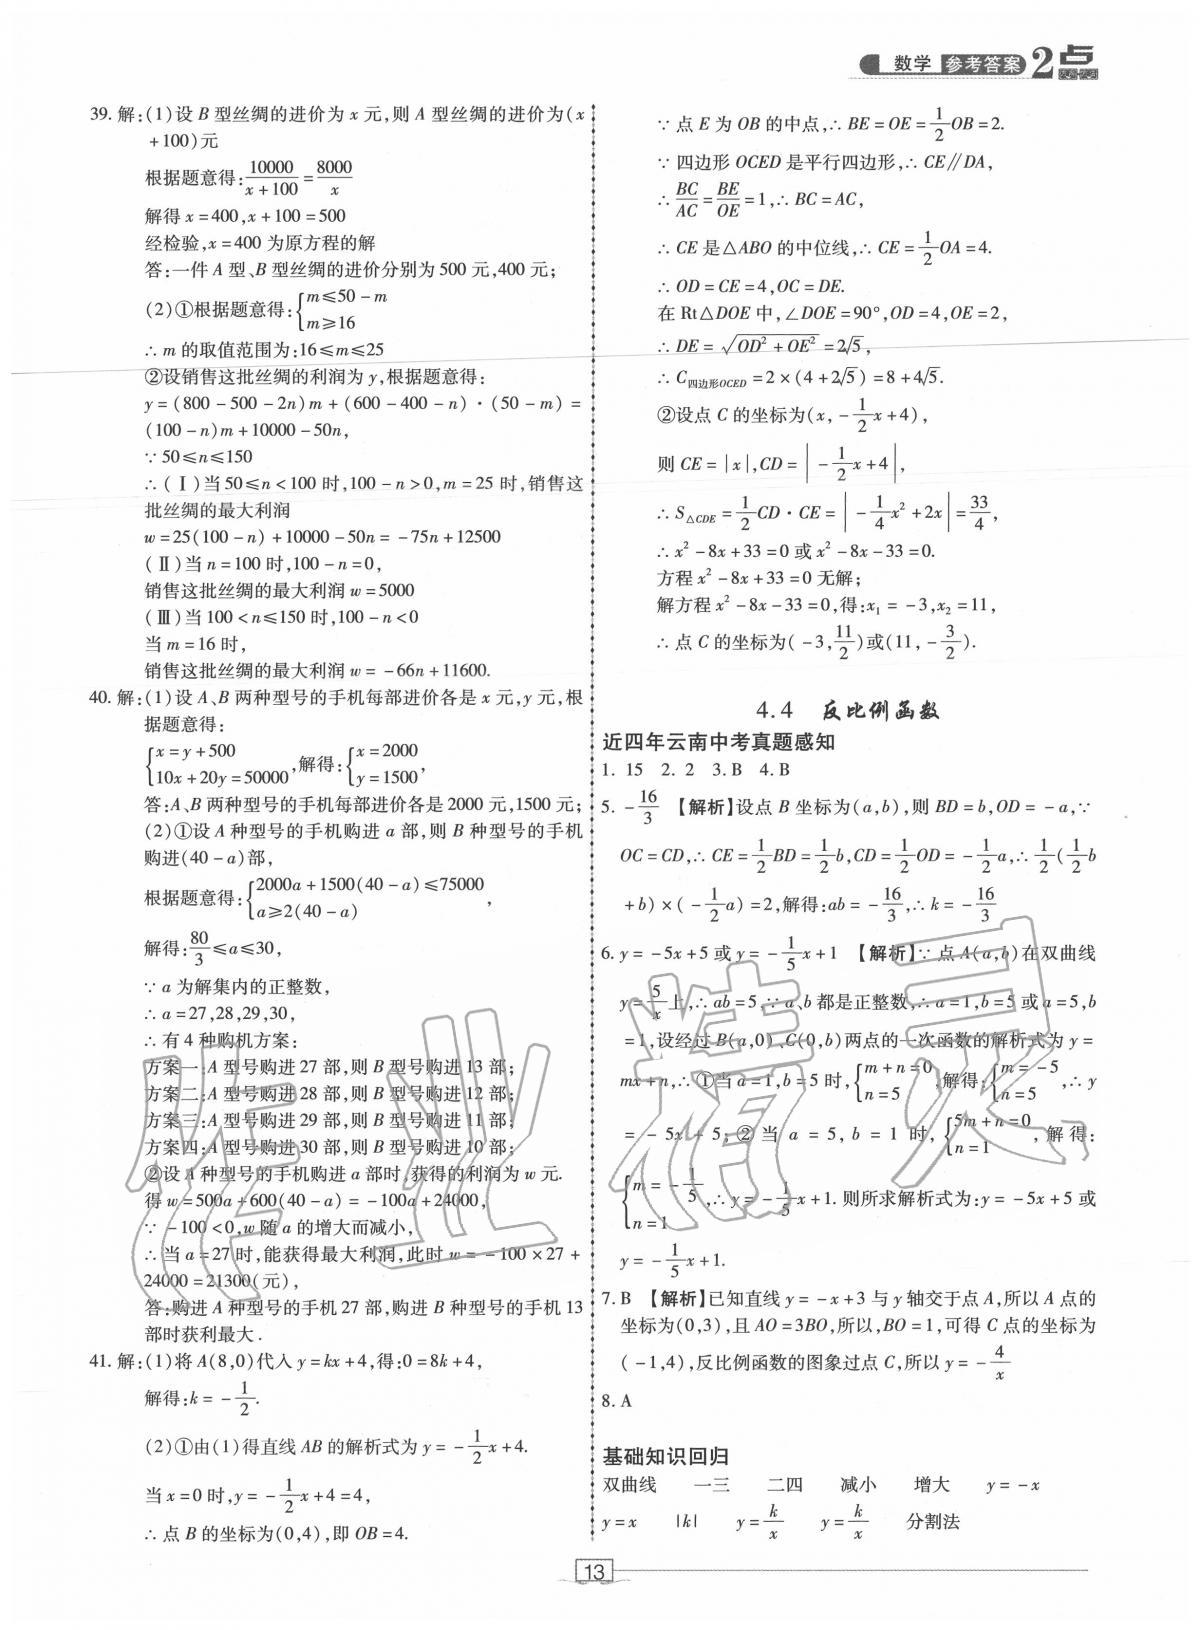 数学 参考答案 2点
39. 解:(1)设 B 型丝绸的进价为 x 元,则 A 型丝绸的进价为(x
+100)元
根据题意得:10000/(x+100)=8000/x
解得 x=400,x+100=500
经检验,x=400 为原方程的解
答:一件 A 型、B 型丝绸的进价分别为 500 元,400 元;
(2)①根据题意得:{m≤50-m
m≥16
∴m 的取值范围为:16≤m≤25
②设销售这批丝绸的利润为 y,根据题意得:
y=(800-500-2n)m+(600-400-n)·(50-m)=
(100-n)m+10000-50n,
∵50≤n≤150
∴(Ⅰ)当 50≤n<100 时,100-n>0,m=25 时,销售这
批丝绸的最大利润
w=25(100-n)+10000-50n=-75n+12500
(Ⅱ)当 n=100 时,100-n=0,
销售这批丝绸的最大利润 w=5000
(Ⅲ)当 100<n≤150 时,100-n<0
当 m=16 时,
销售这批丝绸的最大利润 w=-66n+11600.
40. 解:(1)设 A、B 两种型号的手机每部进价各是 x 元,y 元,根
据题意得:
{x=y+500
10x+20y=50000,解得:{x=2000
y=1500,
答:A、B 两种型号的手机每部进价各是 2000 元,1500 元;
(2)①设 A 种型号的手机购进 a 部,则 B 种型号的手机
购进(40-a)部,
根据题意得:{2000a+1500(40-a)≤75000
a≥2(40-a),
解得:80/3≤a≤30,
∵a 为解集内的正整数,
∴a=27,28,29,30,
∴有 4 种购机方案:
方案一:A 型号购进 27 部,则 B 型号购进 13 部;
方案二:A 型号购进 28 部,则 B 型号购进 12 部;
方案三:A 型号购进 29 部,则 B 型号购进 11 部;
方案四:A 型号购进 30 部,则 B 型号购进 10 部;
②设 A 种型号的手机购进 a 部时,获得的利润为 w 元.
得 w=500a+600(40-a)=-100a+24000,
∵-100<0,w 随 a 的增大而减小,
∴当 a=27 时,能获得最大利润,此时 w=-100×27+
24000=21300(元),
答:购进 A 种型号的手机 27 部,购进 B 种型号的手机 13
部时获利最大.
41. 解:(1)将 A(8,0)代入 y=kx+4,得:0=8k+4,
解得:k=-1/2.
(2)①由(1)得直线 AB 的解析式为 y=-1/2x+4.
当 x=0 时,y=-1/2x+4=4,
∴点 B 的坐标为(0,4),即 OB=4.
∵点 E 为 OB 的中点,∴BE=OE=1/2OB=2.
∵四边形 OCED 是平行四边形,∴CE∥DA,
∴BC/AC=BE/OE=1,∴BC=AC,
∴CE 是△ABO 的中位线,∴CE=1/2OA=4.
∴OD=CE=4,OC=DE.
在 Rt△DOE 中,∠DOE=90°,OD=4,OE=2,
∴DE=√(OD²+OE²)=2√5,
∴C四边形OCED=2×(4+2√5)=8+4√5.
②设点 C 的坐标为(x,-1/2x+4),
则 CE=|x|,CD=|-1/2x+4|,
∴S△CDE=1/2CD·CE=|-1/4x²+2x|=33/4,
∴x²-8x+33=0 或 x²-8x-33=0.
方程 x²-8x+33=0 无解;
解方程 x²-8x-33=0,得:x₁=-3,x₂=11,
∴点 C 的坐标为(-3,11/2)或(11,-3/2).
4.4 反比例函数
近四年云南中考真题感知
1. 15 2. 2 3. B 4. B
5. -16/3 【解析】设点 B 坐标为(a,b),则 BD=b,OD=-a,∵
OC=CD,∴CE=1/2BD=1/2b,CD=1/2OD=-1/2a,∴1/2(1/2b
+b)×(-1/2a)=2,解得:ab=-16/3,∴k=-16/3
6. y=-5x+5 或 y=-1/5x+1 【解析】∵点 A(a,b)在双曲线
y=5/x上,∴ab=5,∵a、b 都是正整数,∴a=1,b=5 或 a=5,b
=1,设经过 B(a,0)、C(0,b)两点的一次函数的解析式为 y=
mx+n,∴①当 a=1,b=5 时,{m+n=0
n=5,解得:{m=-5
n=5,∴y
=-5x+5;②当 a=5,b=1 时,{5m+n=0
n=1,解得:
{m=-1/5
n=1,∴y=-1/5x+1. 则所求解析式为:y=-5x+5 或
y=-1/5x+1.
7. B 【解析】已知直线 y=-x+3 与 y 轴交于点 A,所以 A 点的
坐标为(0,3),且 AO=3BO,所以,BO=1,可得 C 点的坐标为
(-1,4),反比例函数的图象过点 C,所以 y=-4/x
8. A
基础知识回归
双曲线 一三 二四 减小 增大 y=-x
y=x |k| y=k/x y=k/x 分割法
13
作业精灵